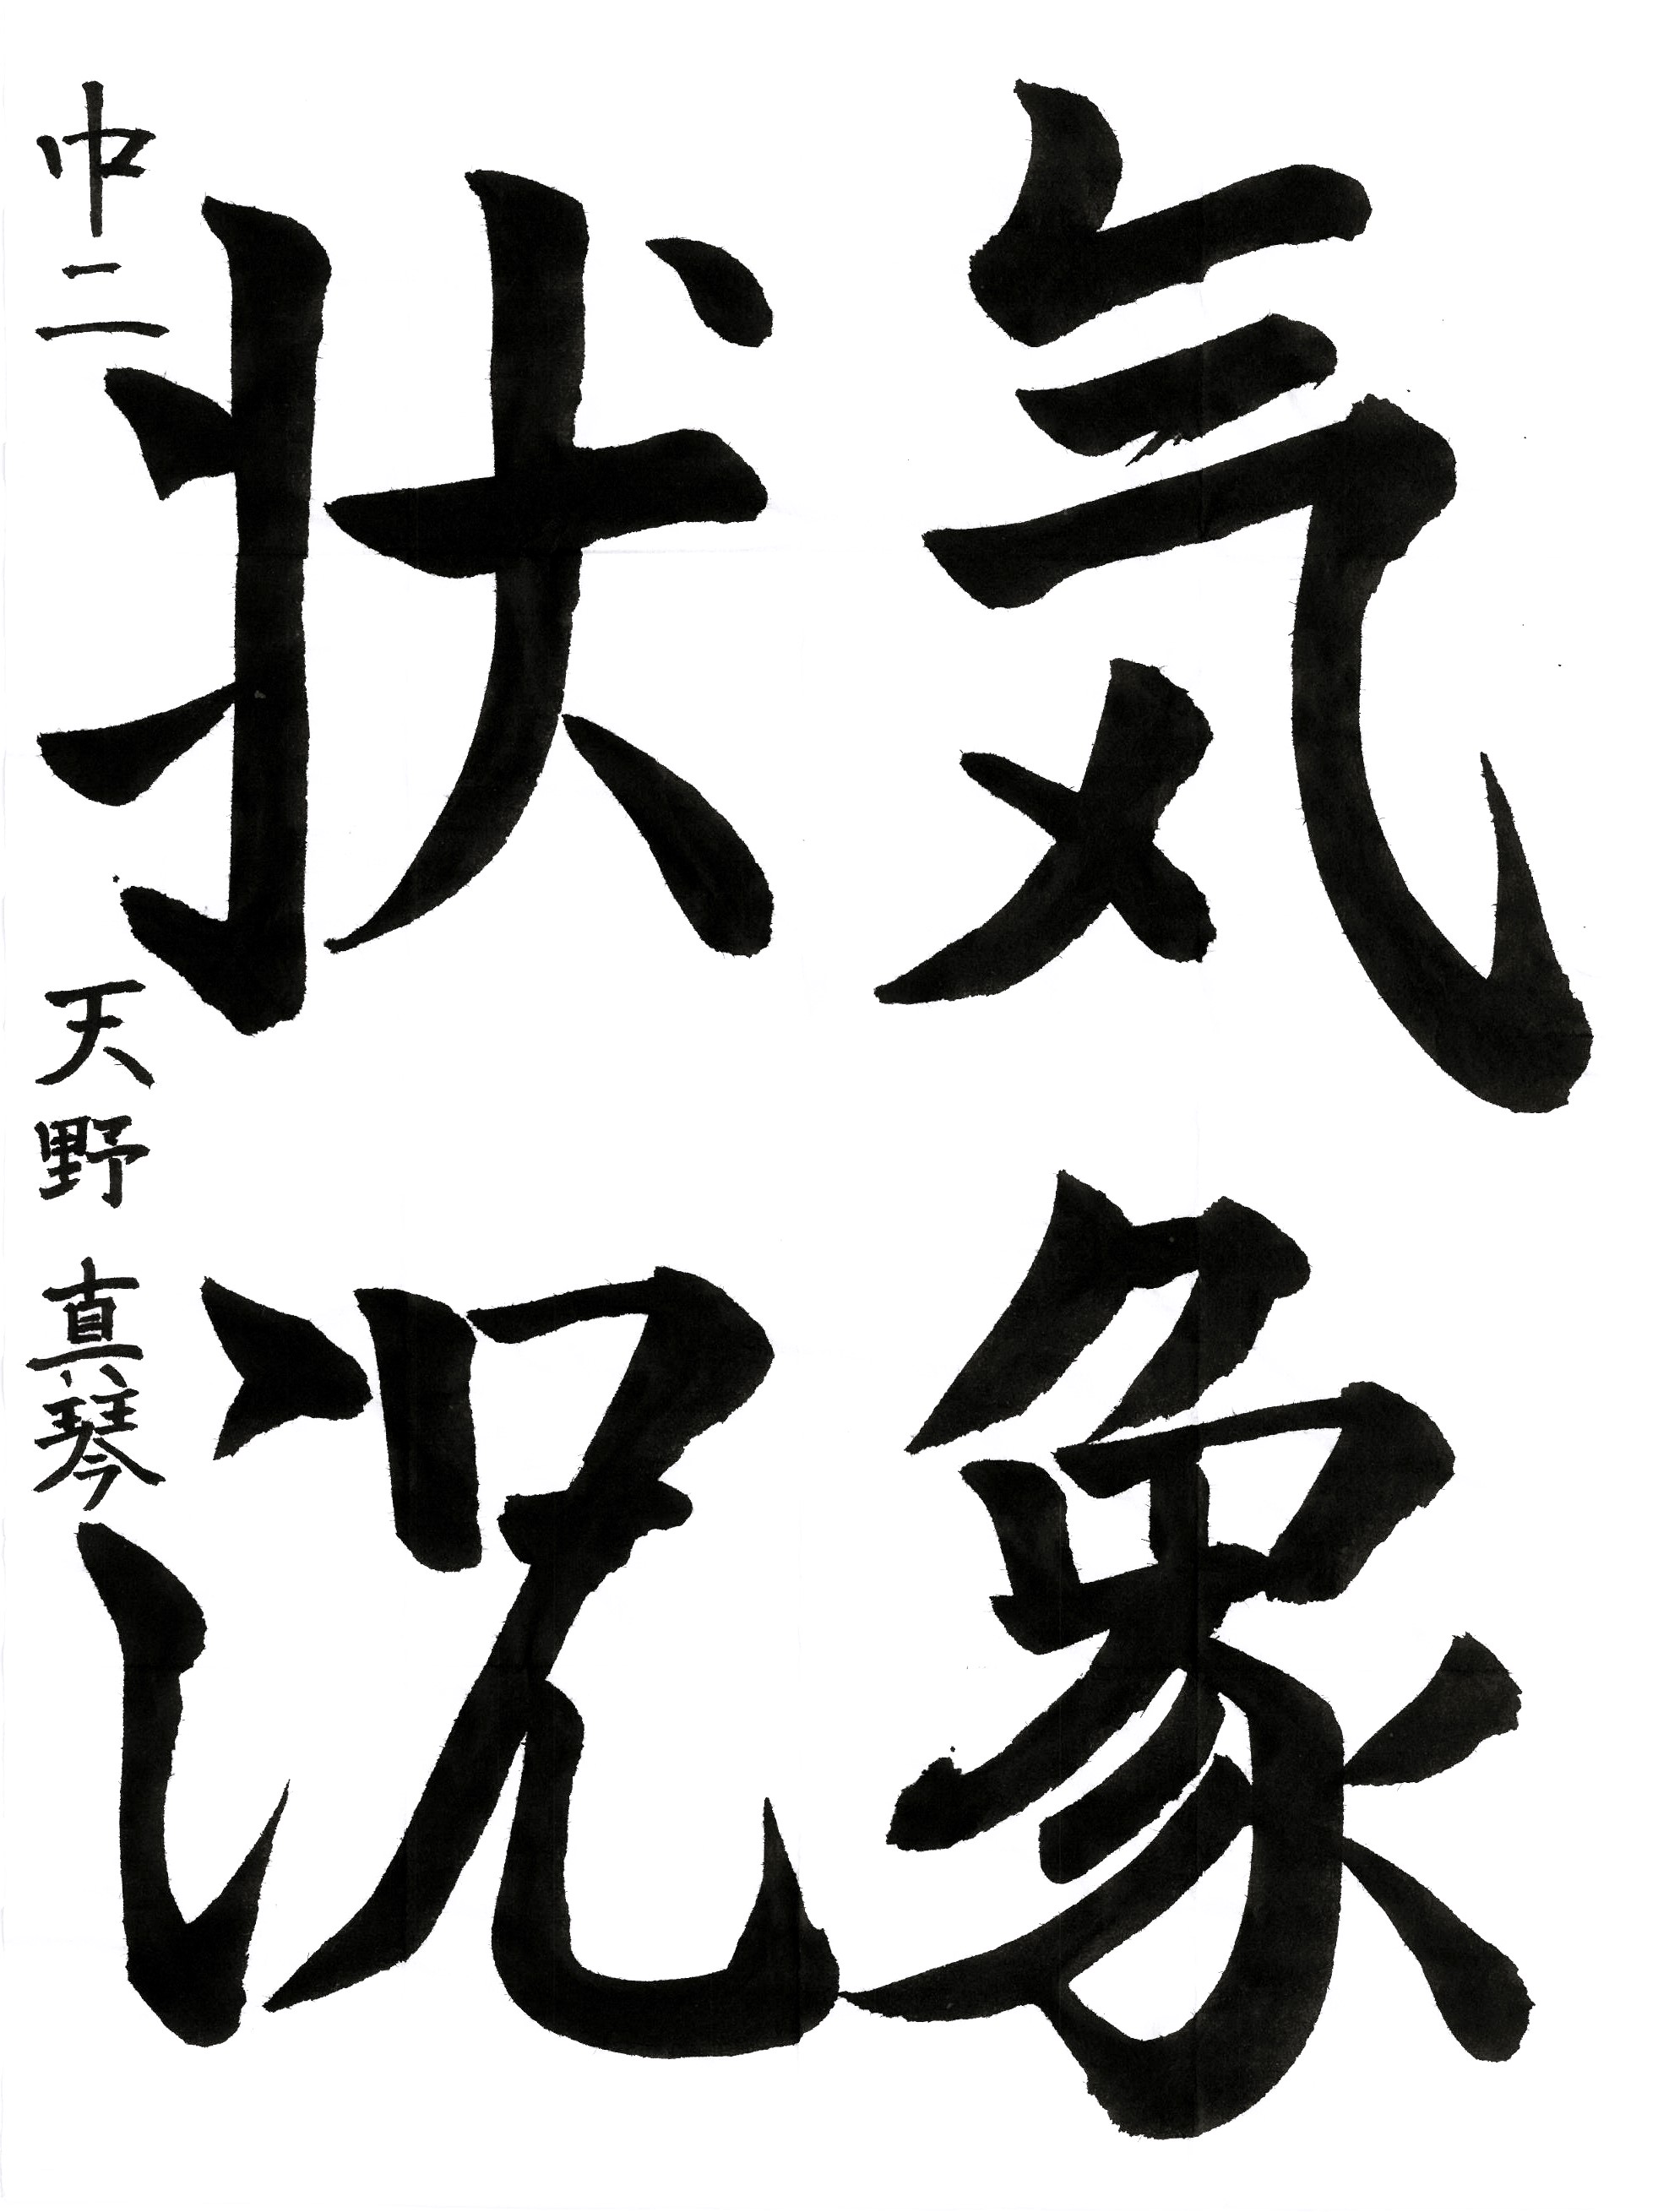 気象
状況
中二 天野 真琴